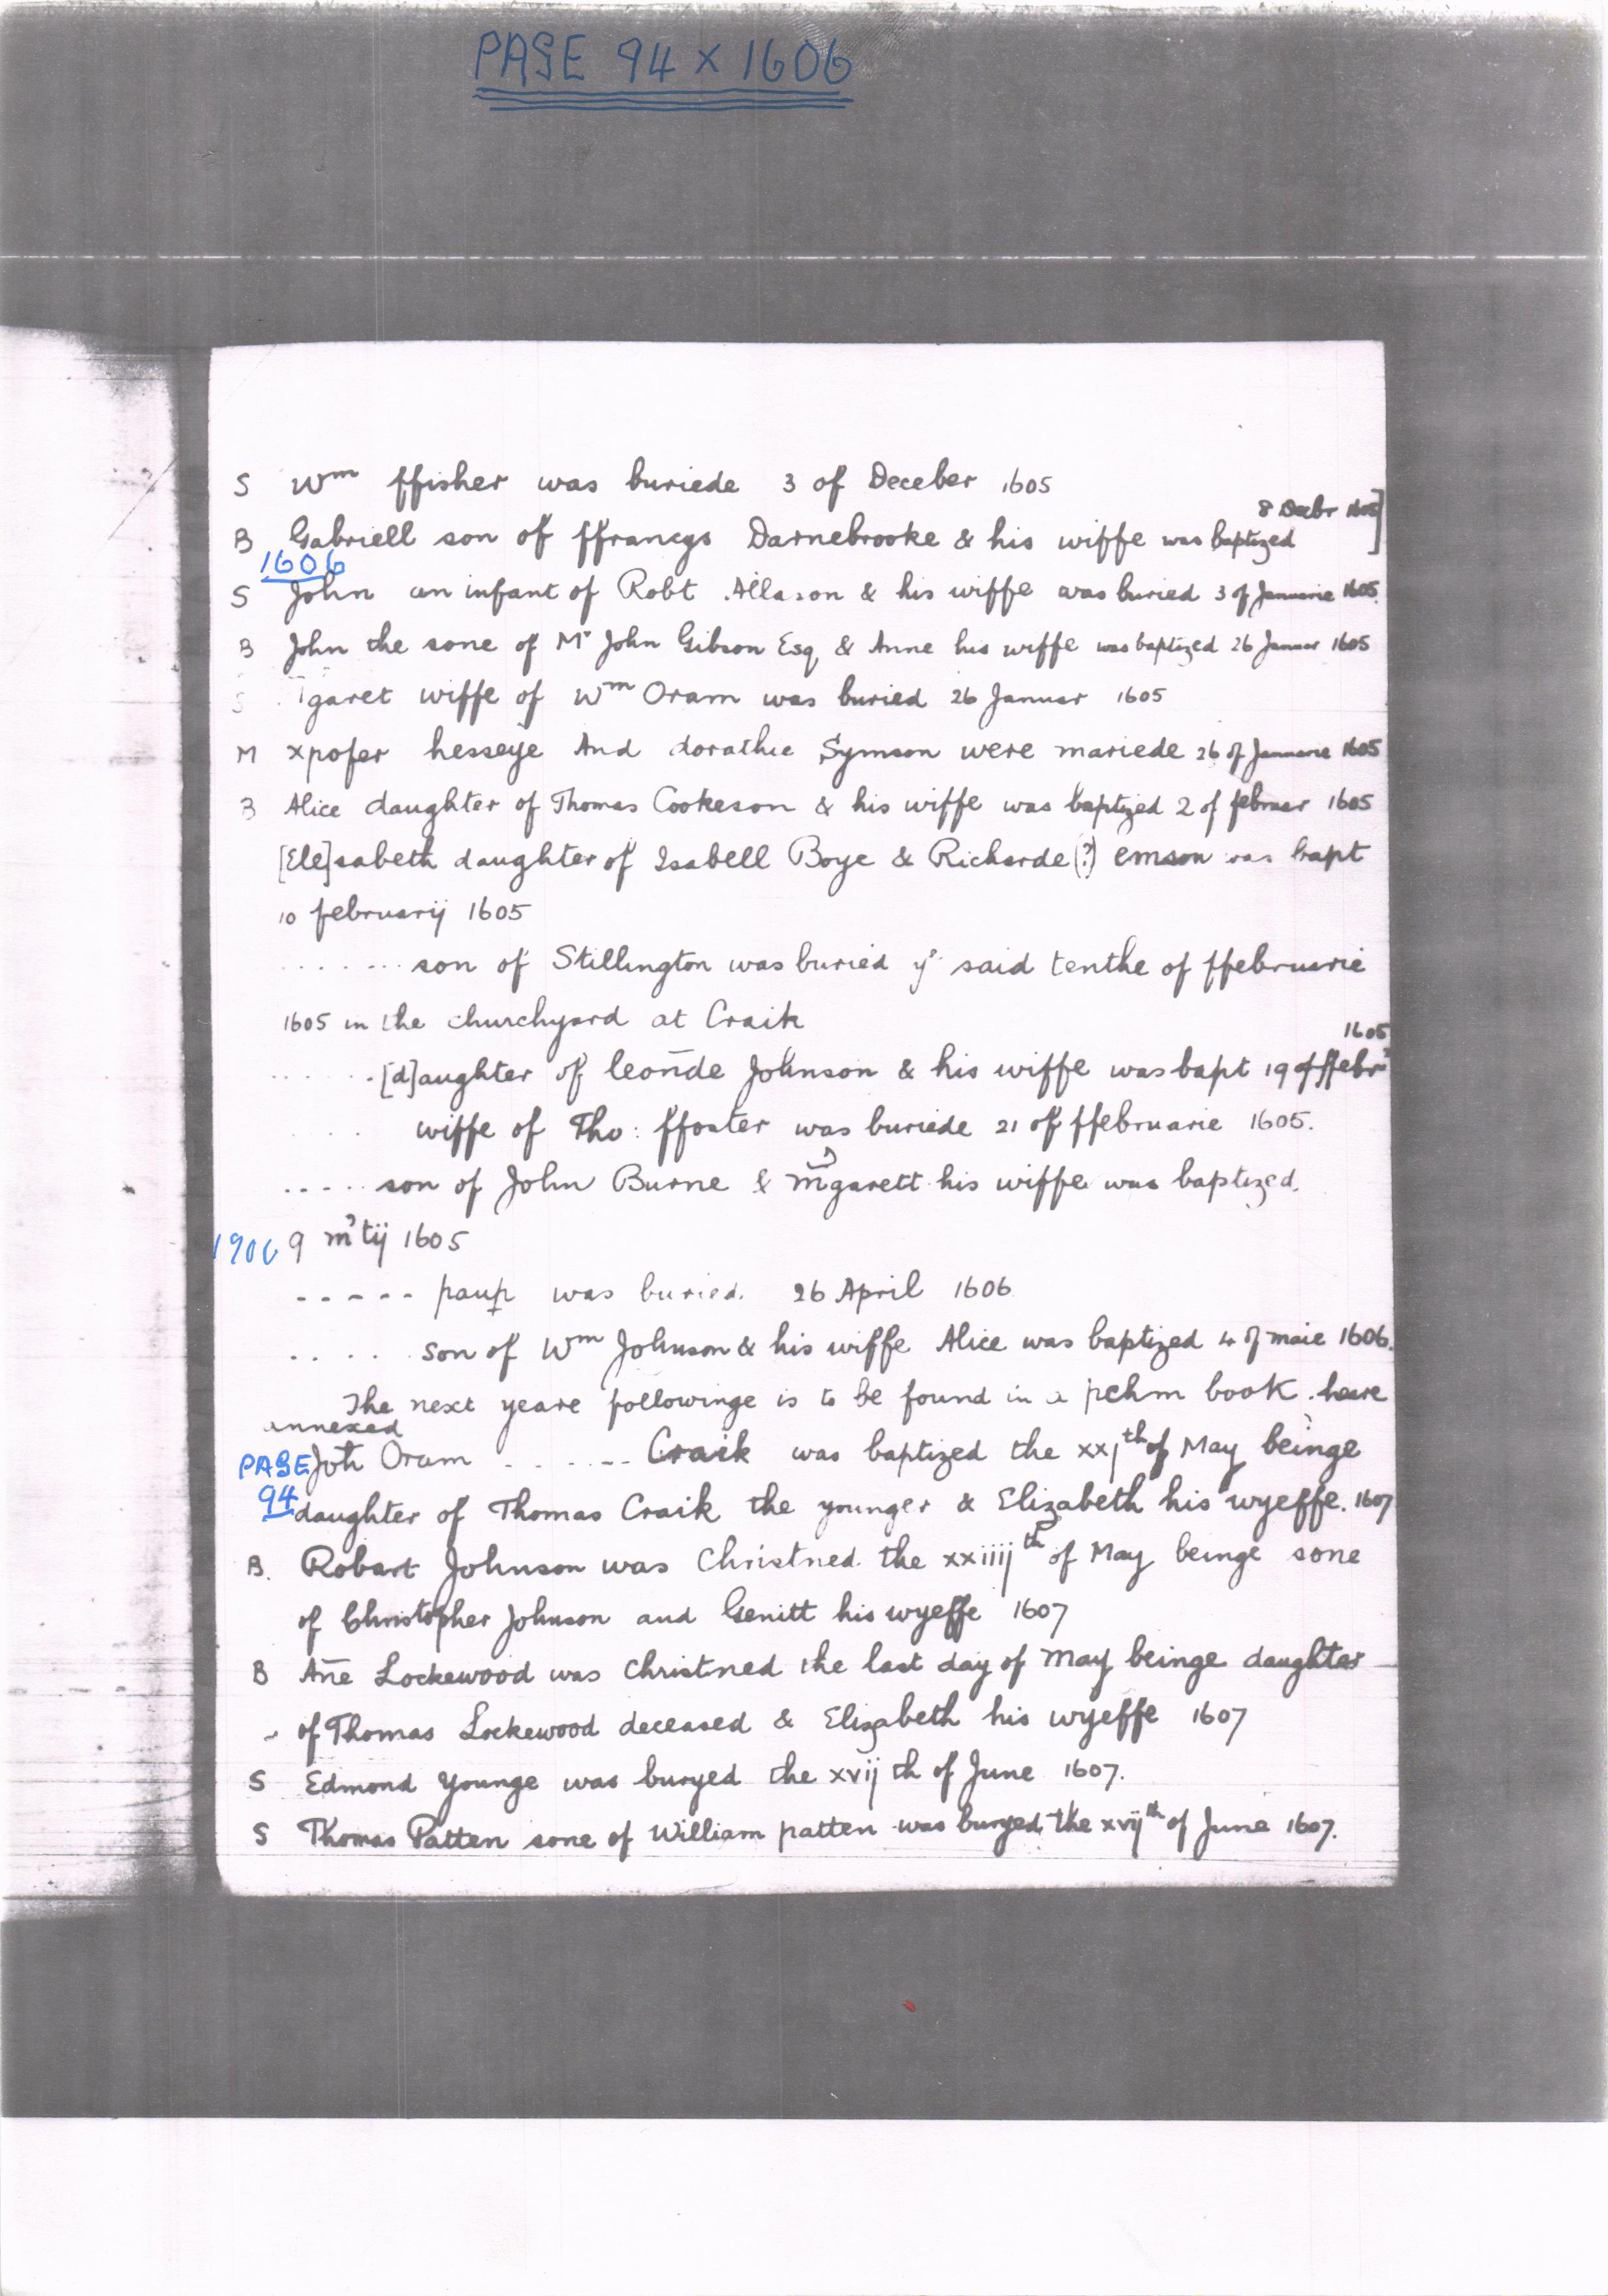 PAGE 94 x 1606
S Wm ffisher was buriede 3 of Deceber 1605
8 Decbr 1605]
B Gabriell son of ffrancys Darnebrooke & his wiffe was baptized
1606
S John an infant of Robt Allason & his wiffe was buried 3 of Januarie 1605.
B John the sone of Mr John Gibson Esq & Anne his wiffe was baptized 26 Januar 1605
S garet wiffe of Wm Oram was buried 26 Januar 1605
M xpofer hesseye And dorathie Symson were mariede 26 of Januarie 1605
B Alice daughter of Thomas Cookeson & his wiffe was baptized 2 of februar 1605
[Ele]sabeth daughter of Isabell Boye & Richarde (?) emson was bapt
10 februarij 1605
....... son of Stillington was buried ye said tenthe of ffebruarie
1605 in the churchyard at Craik
1605
...... [d]aughter of leon̄de Johnson & his wiffe was bapt 19 of ffebr'
.... wiffe of Tho: ffoster was buriede 21 of ffebruarie 1605.
..... son of John Burne & m̄garett his wiffe was baptized.
9 m'tij 1605
----- paup was buried. 26 April 1606
..... son of Wm Johnson & his wiffe Alice was baptized 4 of maie 1606.
The next yeare followinge is to be found in a pchm book heare
annexed
PAGE Joh Oram ...... Craik was baptized the xxjth of May beinge
94 daughter of Thomas Craik the younger & Elizabeth his wyeffe. 1607
B. Robart Johnson was Christned the xxiiijth of May beinge sone
of Christopher Johnson and Genitt his wyeffe 1607
B An̄e Lockewood was Christned the last day of May beinge daughter
of Thomas Lockewood deceased & Elizabeth his wyeffe 1607
S Edmond Younge was buryed the xvij th of June 1607.
S Thomas Patten sone of William patten was buryed the xvijth of June 1607.